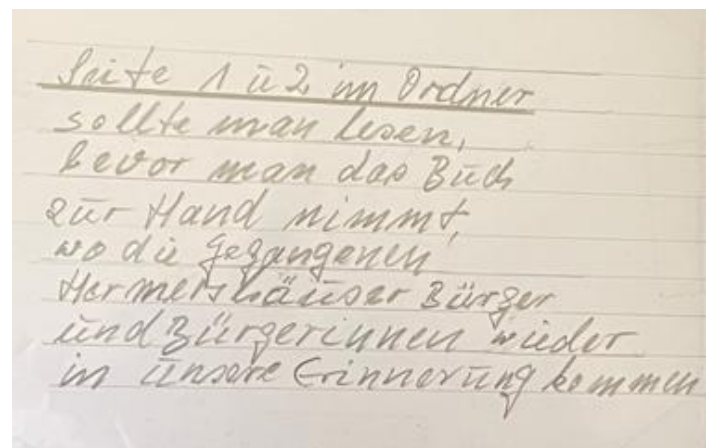 Seite 1 u 2 im Ordner
sollte man lesen,
bevor man das Buch
zur Hand nimmt,
wo die gegangenen
Hermershäuser Bürger
und Bürgerinnen wieder
in unsere Erinnerung kommen